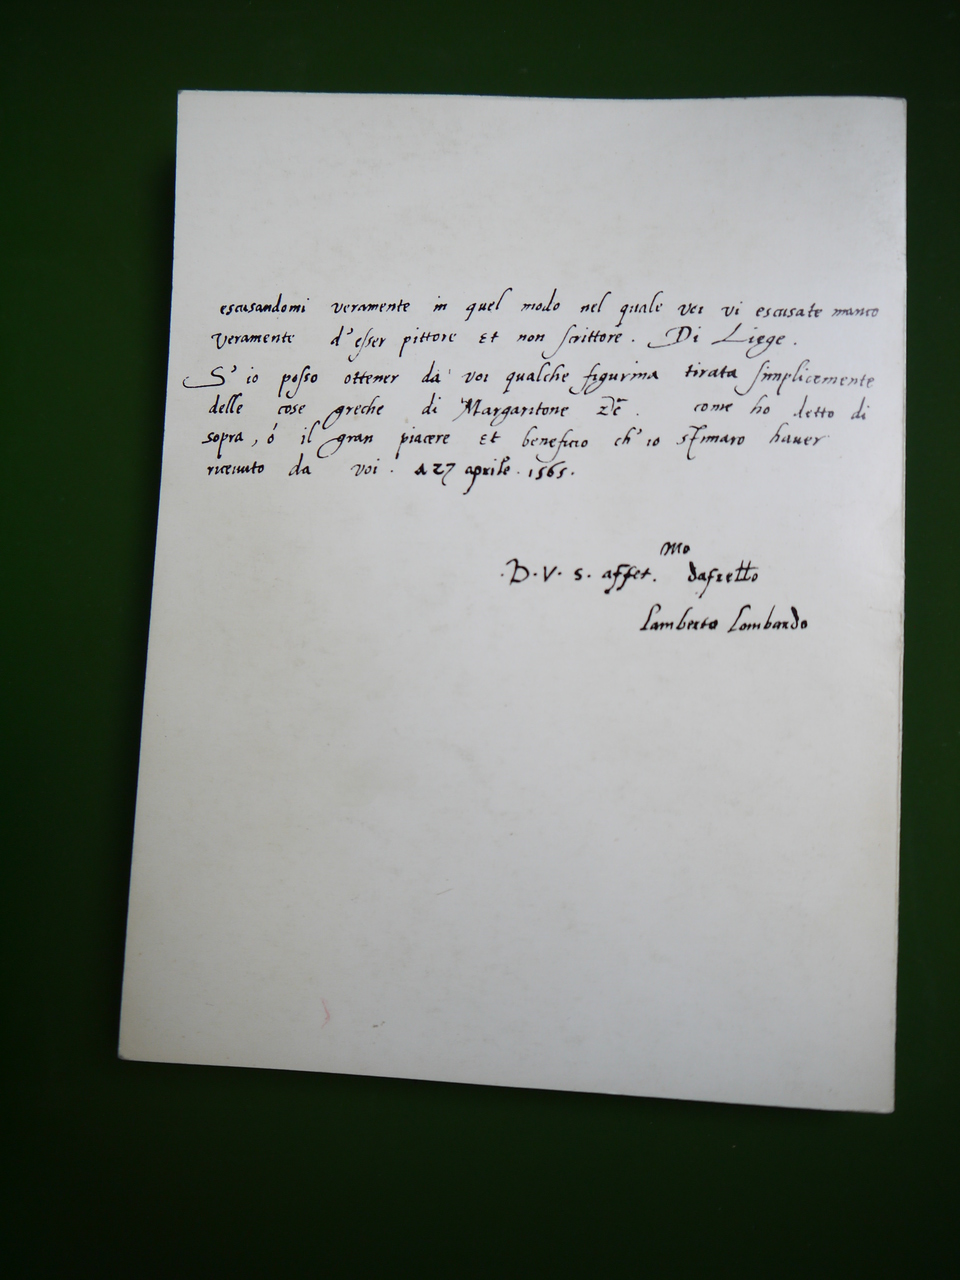 escusandomi veramente in quel modo nel quale voi vi escusate manco
veramente d'esser pittore et non scrittore. Di Liege.
S'io posso ottener da voi qualche figurina tirata simplicemente
delle cose greche di Margaritone come ho detto di
sopra, ó il gran piacere et beneficio ch'io stimaro haver
ricevuto da voi. A 27 aprile. 1565.
mo
.D.V.S. affet.
Lamberto Lombardo